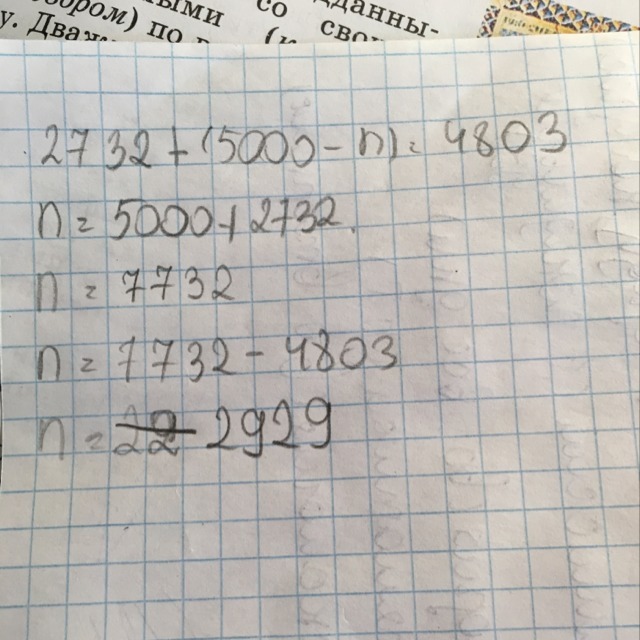 ными со
дданны-
бором) по
(и
сво
у. Дваж
2732 + (5000 - n) = 4803
n = 5000 + 2732
n = 7732
n = 7732 - 4803
n = 22 2929